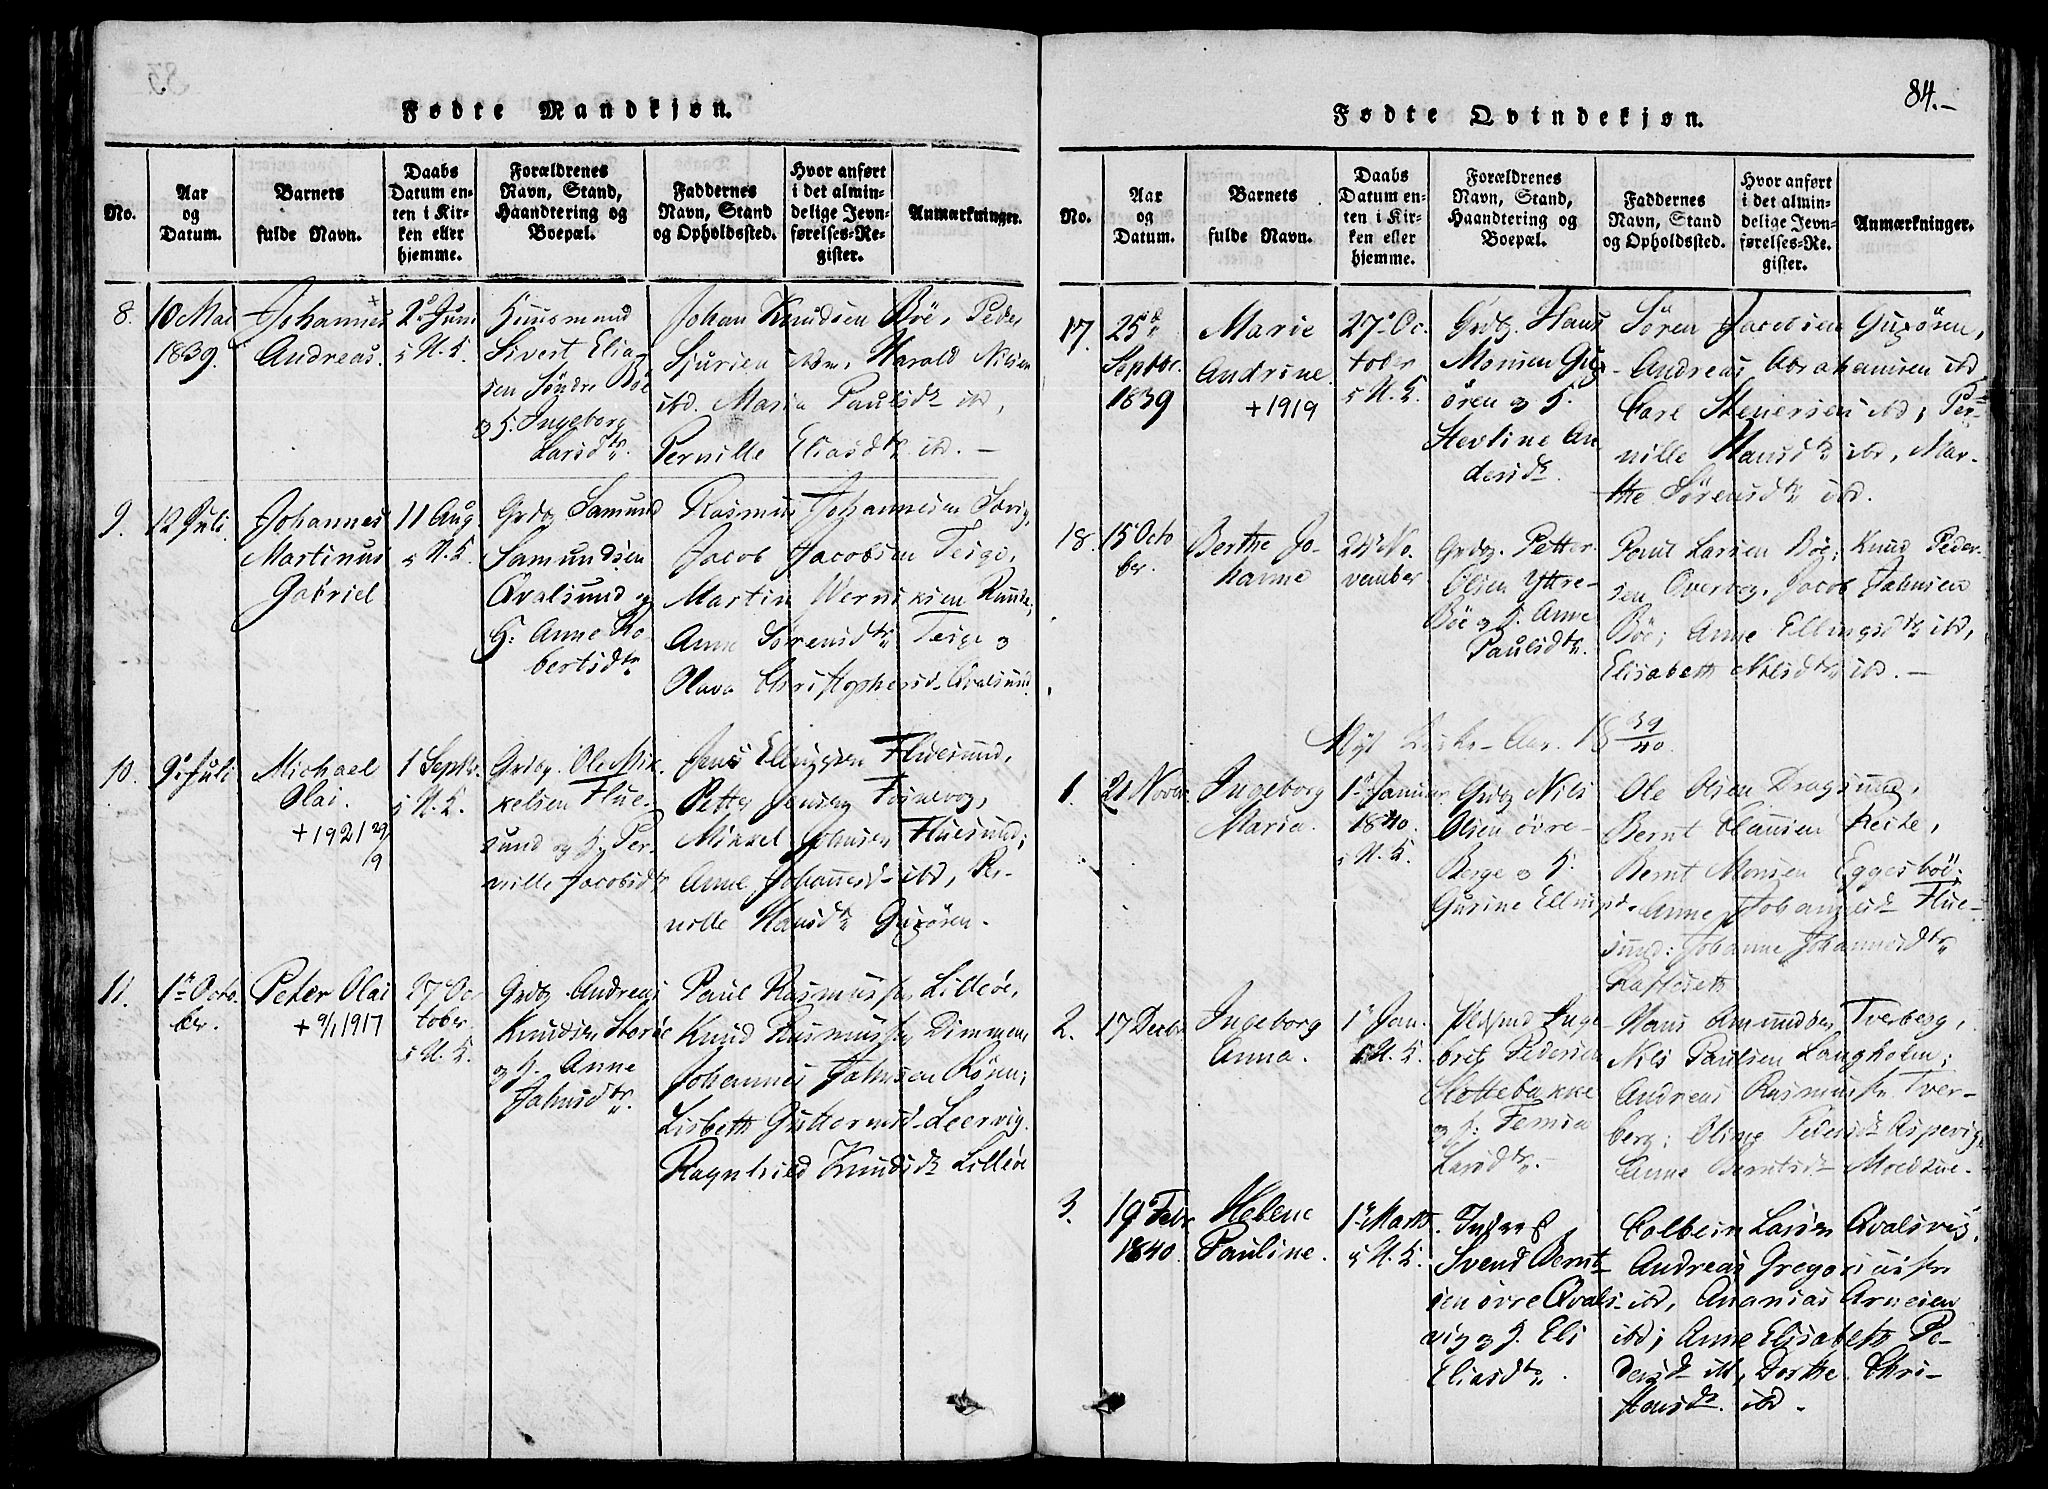 84.-
Fødte Mandkjøn.
No.
Aar
og
Datum.
Barnets
fulde Navn.
Daabs
Datum en-
ten i Kir-
ken eller
hjemme.
Forældrenes
Navn, Stand,
Haandtering og
Boepæl.
Faddernes
Navn, Stand
og Opholdssted.
Hvor anført
i det almin-
delige Jevn-
førelses-Re-
gister.
Anmærkninger.
8.
10 Mai
1839.
Johannes +
Andreas.
2den Juni
i H. K.
Huusmand
Sivert Elia-
sen Søndre Böe
og H. Ingeborg
Larsdtr.
Johan Knudsen Böe, Peder
Sjursen ibdm, Harald Nilsen
ibd. Maria Paulsdr ibd,
Pernille Eliasdtr ibd. -
9.
12 Juli
Johannes
Martinus
Gabriel
11 Aug.
i H. K.
Grdbg. Samund
Samundsen
Qvalsund og
H: Anne Ro-
bertsdtr
Rasmus Johannesen
Jacob Jacobsen Teige,
Martin Werniksen Runde,
Anne Sörensdtr Teige og
Olava Christophersd. Qvalsund.
10.
9de Juli
Michael
Olai.
+ 1921 29/9
1 Septbr.
i H. K.
Grdbg. Ole Mik-
kelsen Flue-
sund og H. Per-
nille Jacobsdtr
Jens Ellingsen Fluesund,
Petter Jensen Fosnevog,
Mikkel Johnsen Fluesund;
Anne Johannesd. ibd, Per-
nille Hansdtr Gurzören.
11.
1ste Octo-
ber.
Peter Olai
+ 9/1 1917
27 Oc-
tober
i H. K.
Grdbg Andreas
Knudsen Storöe
og H. Anne
Jahnsdtr.
Paul Rasmussen Lillöe,
Knud Rasmussen Dimmen,
Johannes Jahnsen Röne;
Lisbeth Guttormsd. Leervig.
Ragnhild Knudsdr Lillöe
Fødte Qvindekjøn.
No.
Aar
og
Datum.
Barnets
fulde Navn.
Daabs
Datum en-
ten i Kir-
ken eller
hjemme.
Forældrenes
Navn, Stand,
Haandtering og
Boepæl.
Faddernes
Navn, Stand
og Opholdssted.
Hvor anført
i det almin-
delige Jevn-
førelses-Re-
gister.
Anmærkninger.
17.
25de
Septbr.
1839
Marie
Andrine.
+ 1919
27de Oc-
tober
i H. K.
Grdbg. Hans
Monsen Gurz-
ören og H.
Stevline An-
dersdr.
Sören Jacobsen Gurzören,
Andreas Abrahamsen ibd
Carl Steversen ibd; Per-
nille Hansdtr ibd, Mar-
the Sörensdtr ibd.
18.
15 Octo
ber.
Berthe Jo-
hanne
24de No-
vember
Grdbg. Petter
Olsen Yttre-
Böe og H. Anne
Paulsdtr.
Poul Larsen Böe; Knud Peder-
sen Overberg, Jacob Jahnsen
Böe; Anne Ellingsdtr ibd,
Elisabeth Nilsdtr ibd. -
Nyt Kirke-Aar 18 39/40
1.
21 Novbr
Ingeborg
Maria.
1ste Januar
1840.
i H. K.
Grdbg Nils
Olsen övre-
Berge og H.
Gurine Ellingsd.
Ole Olsen Dragsund,
Bernt Clausen Keite,
Bernt Monsen Eggesböe;
Anne Johannesdr Flue-
sund: Johanne Johannesdtr
2.
17 Decbr
Ingeborg
Anna.
1ste Jan.
i H. K.
Pladsmd Inge-
brit Pedersen
Hottebakke
og H: Femia
Larsdtr. -
Hans Amundsen Tverberg,
Nils Paulsen Langholm;
Andreas Rasmussen Tver-
berg; Oline Pedersdr Aspevig
Anne Berntsdr Moldtue.
3.
19de Febr
1840.
Helene
Pauline.
1ste Marts
i H. K.
Svend Bernt-
sen övre Qvals-
vig og H. Eli
Eliasdtr.
Colbein Larsen Qvalsvig,
Andreas Gregoriussen
ibd, Ananias Arnesen
ibd; Anne Elisabeth Pe-
dersdr ibd, Dorthe Chri-
stensdr. ibd.